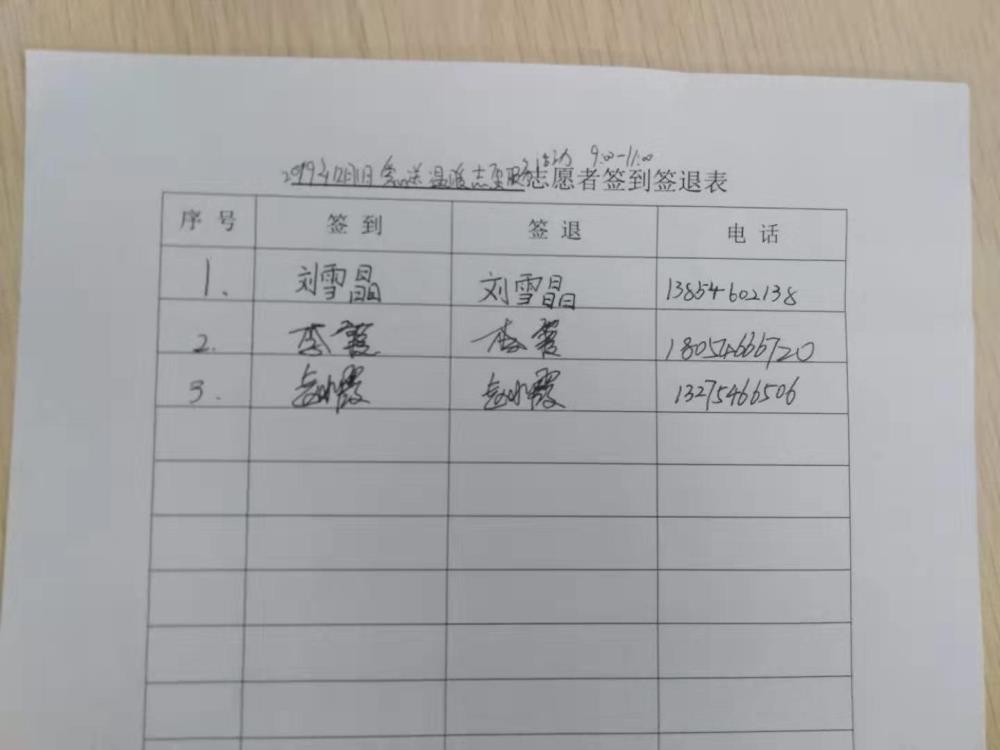 活动 9:00-11:00
2019年12月1日 送温暖志愿服务志愿者签到签退表
序号 签到 签退 电话
1. 刘雪晶 刘雪晶 13854602138
2. 李霞 李霞 18054666720
3. 13275466506